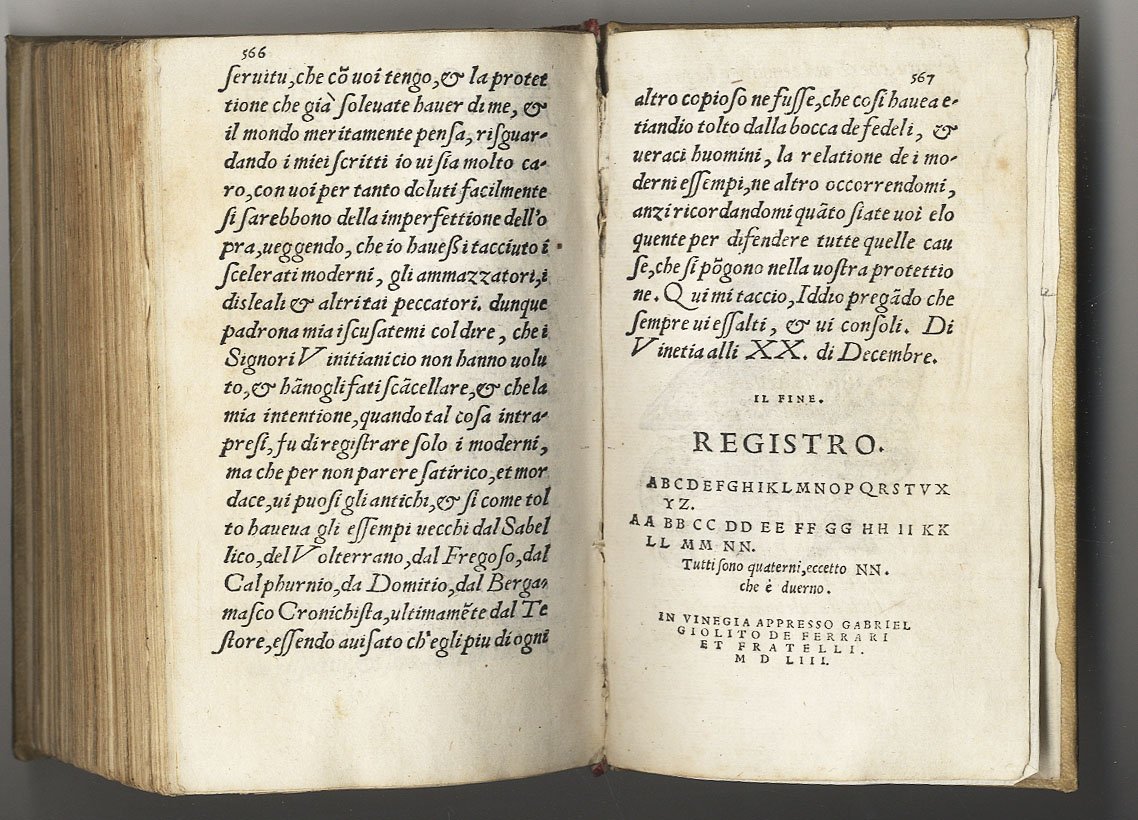 566
ſeruitu,che cõ uoi tengo,& la protet
tione che già ſoleuate hauer di me, &
il mondo meritamente penſa, riſguar-
dando i miei ſcritti io ui ſia molto ca-
ro,con uoi per tanto doluti facilmente
ſi ſarebbono della imperfettione dell'o
pra,ueggendo, che io haueßi tacciuto i
ſcelerati moderni, gli ammazzatori,i
disleali & altri tai peccatori. dunque
padrona mia iſcuſatemi col dire, che i
Signori Vinitiani cio non hanno uolu
to,& hãnogli fati ſcãcellare,& che la
mia intentione,quando tal coſa intra-
preſi, fu di regiſtrare ſolo i moderni,
ma che per non parere ſatirico,et mor
dace,ui puoſi gli antichi,& ſi come tol
to haueua gli eſſempi uecchi dal Sabel
lico,del Volterrano,dal Fregoſo,dal
Calphurnio,da Domitio,dal Berga-
maſco Cronichiſta,ultimamẽte dal Te
ſtore,eſſendo auiſato ch'egli piu di ogni
567
altro copioſo ne fuſſe,che coſi hauea e-
tiandio tolto dalla bocca de fedeli, &
ueraci huomini, la relatione de i mo-
derni eſſempi,ne altro occorrendomi,
anzi ricordandomi quãto ſiate uoi elo
quente per difendere tutte quelle cau
ſe,che ſi põgono nella uoſtra protettio
ne. Qui mi taccio, Iddio pregãdo che
ſempre ui eſſalti, & ui conſoli. Di
Vinetia alli XX. di Decembre.
IL FINE.
REGISTRO.
ABCDEFGHIKLMNOPQRSTVX
YZ.
AA BB CC DD EE FF GG HH II KK
LL MM NN.
Tutti ſono quaterni,eccetto NN.
che è duerno.
IN VINEGIA APPRESSO GABRIEL
GIOLITO DE FERRARI
ET FRATELLI.
M D LIII.